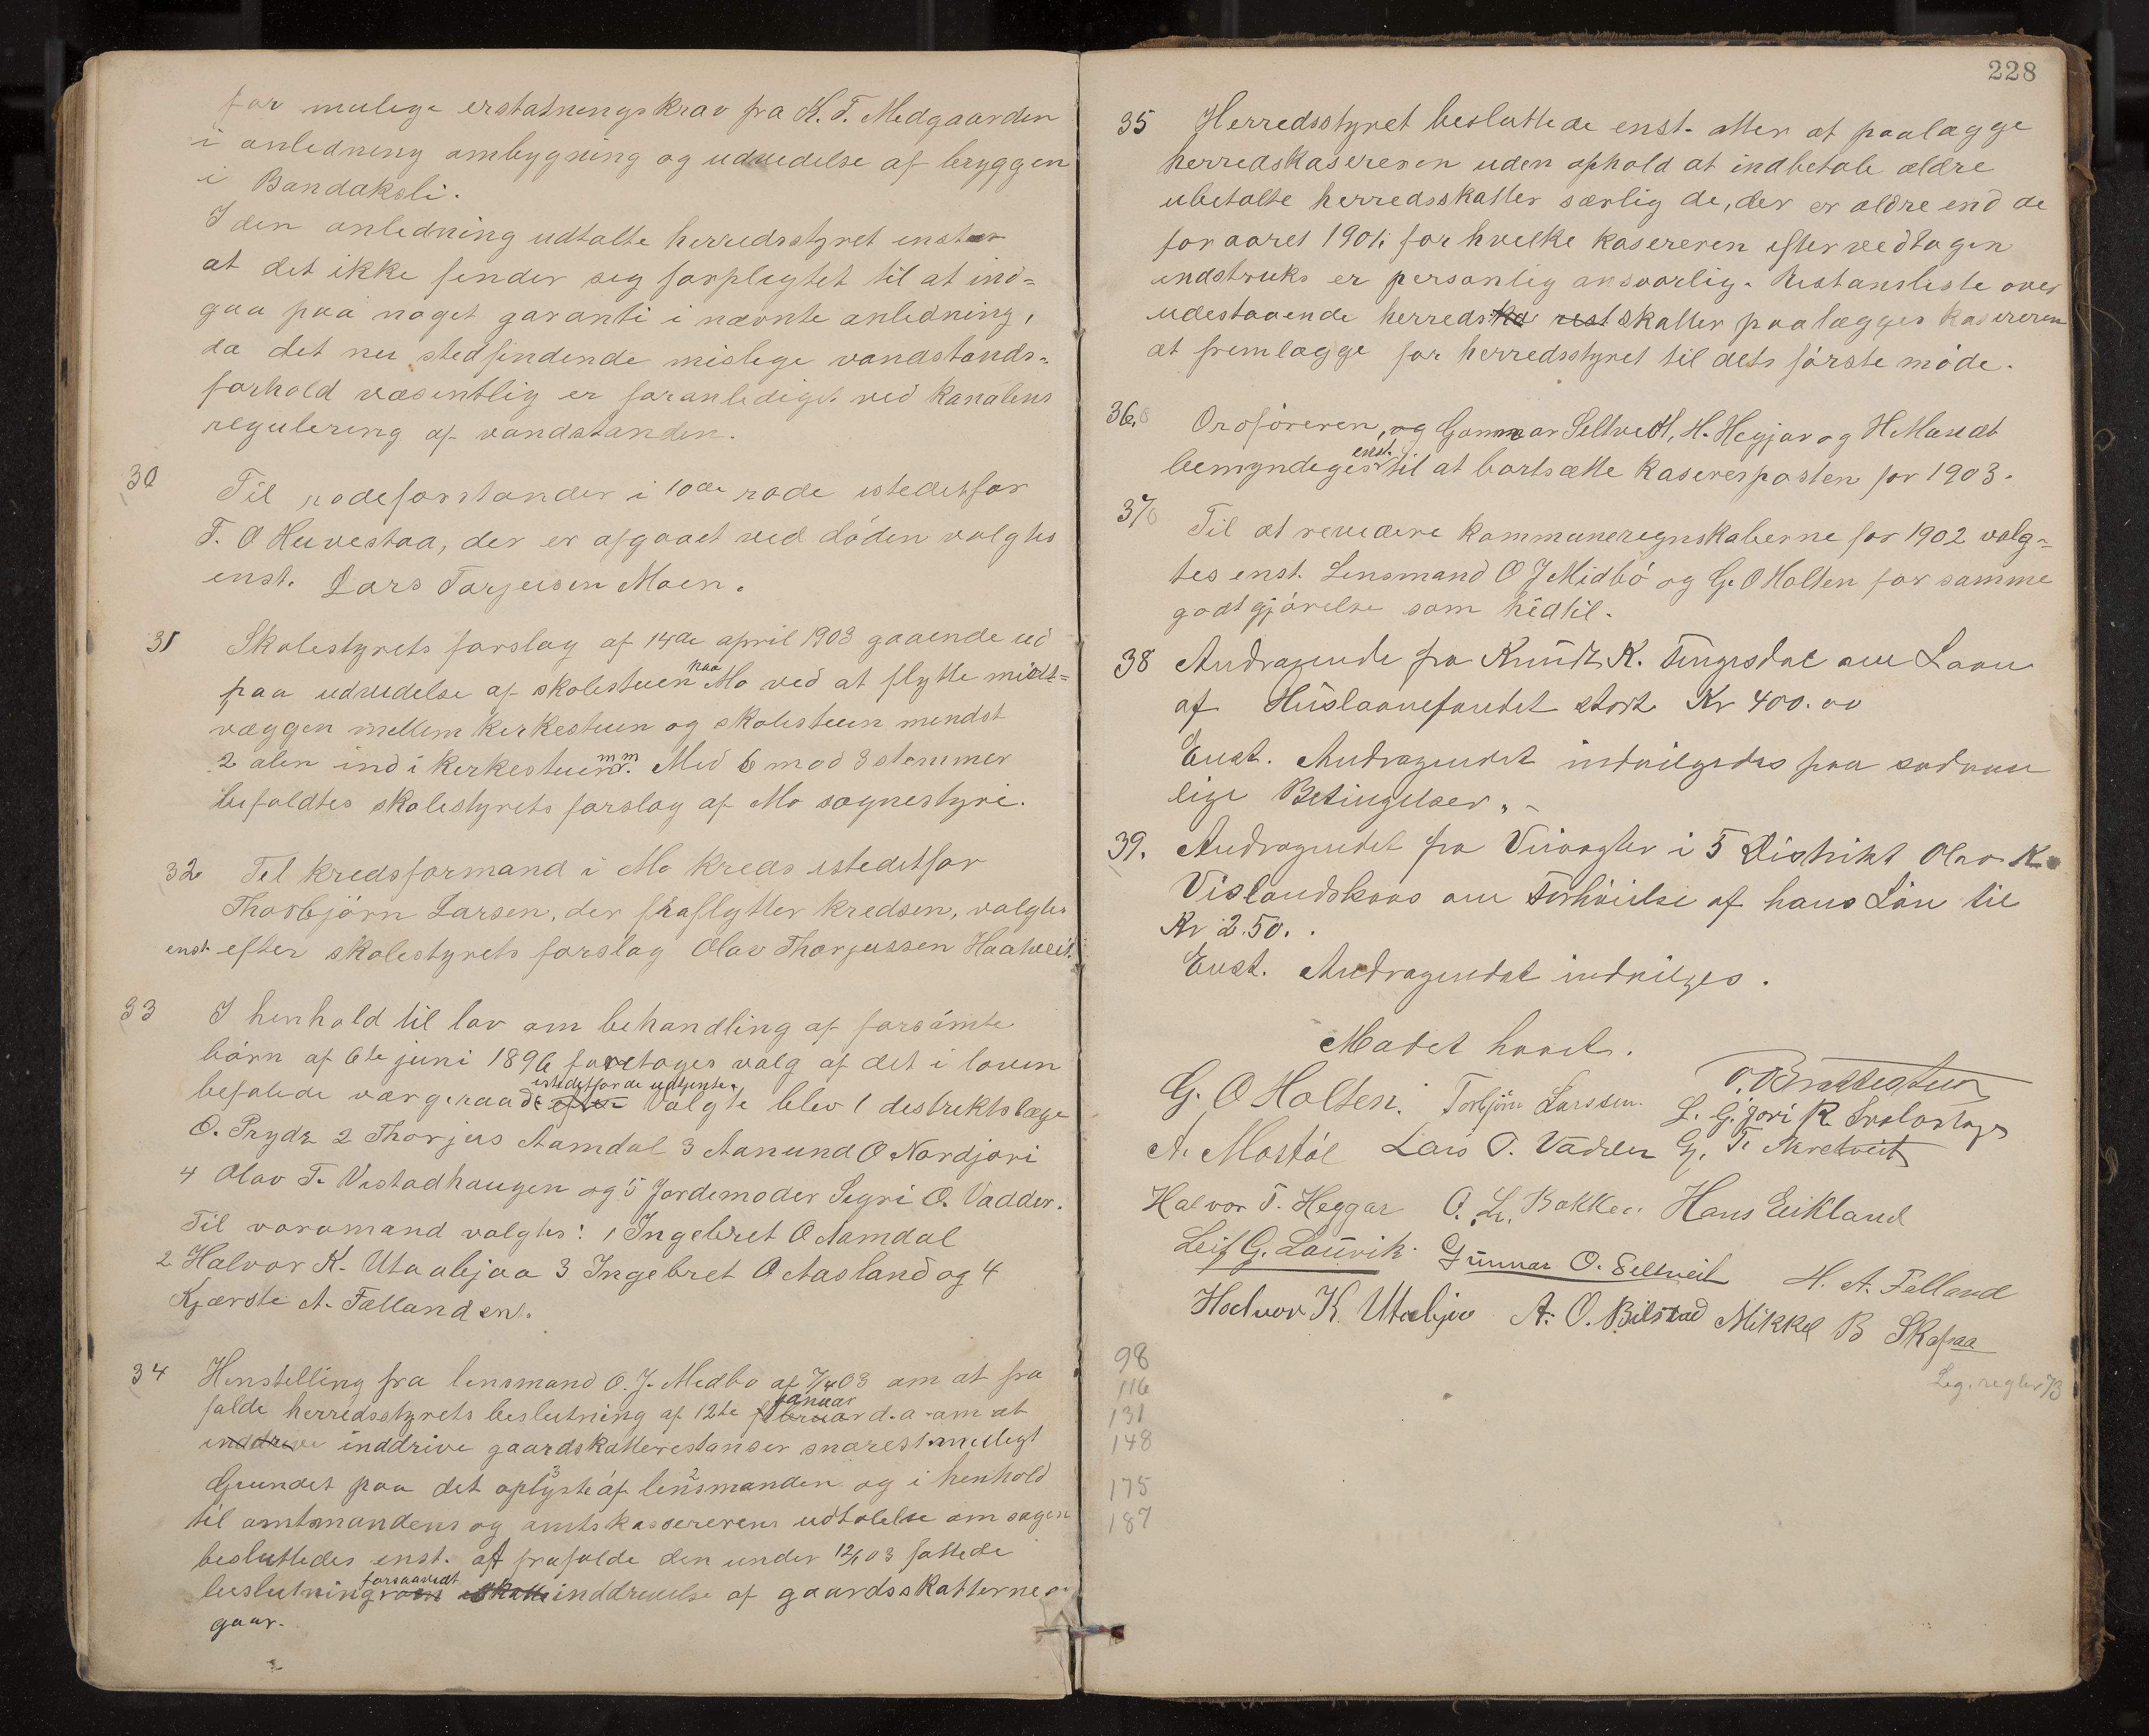 for mulige erstatningskrav fra K. T. Medgaarden
i anledning ombygning og udvidelse af bryggen
i Bandaksli.
I den anledning udtalte herredsstyret enst
at det ikke finder sig forpligtet til at ind=
gaa paa noget garanti i nævnte anledning,
da det nu stedfindende mislige vandstands=
forhold væsentlig er foranlediget ved kanalens
regulering af vandstanden.
30 Til rodeforstander i 10de rode istedetfor
T. O Huvestaa, der er afgaaet ved döden valgtes
enst. Lars Torjusen Moen.
31 Skolestyrets forslag af 14de april 1903 gaaende ud
paa udvidelse af skolestuen paa Mo ved at flytte midt=
væggen mellem kirkestuen og skolestuen mindst
2 alen ind i kirkestuen m m. Med 6 mod 3 stemmer
bifaldtes skolestyrets forslag af Mo sognestyre.
32 Til kredsformand i Mo kreds istedetfor
Thorbjörn Larsen, der fraflytter kredsen, valgtes
enst. efter skolestyrets forslag Olav Thorjussen Haatveit.
33 I henhold til lov om behandling af forsömte
börn af 6te juni 1896 foretoges valg af det i loven
befalede værgeraad istedetfor de udtjente. Valgte blev 1 distriktslæge
O. Prydz 2 Thorjus Aamdal 3 Aanund O Nordjori
4 Olav T. Vistadhaugen og 5 Jordemoder Sigri O. Vadder.
Til varamænd valgtes: 1 Ingebret O Aamdal
2 Halvor K. Utaabjaa 3 Ingebret O Aasland og 4
Kjærsti A. Fællanden.
34 Henstilling fra lensmand O. J. Midbo af 7/4 03 om at fra
falde herredsstyrets beslutning af 12te januar d. a. om at
inddrive inddrive gaardskatterestanser snarest muligt
Grundet paa det oplyste af lensmanden og i henhold
til amtmandens og amtskassererens udtalelse om sagen
besluttedes enst. at frafalde den under 12/1 03 fattede
beslutning forsaavidt inddrivelse af gaardsskatterne an-
gaar.
228
35 Herredsstyret besluttede enst. atter at paalægge
herredskasereren uden ophold at indbetale ældre
ubetalte herredsskatter særlig de, der er ældre end de
for aaret 1901; for hvilke kasereren efter vedtagen
indstruks er personlig ansvarlig. Restansliste over
udestaaende herreds skatter paalægges kasereren
at fremlægge for herredsstyret til dets förste möde.
36. Ordföreren, og Gunnar Seltveit, H. Heggar og H Mandt
bemyndiges enst. til at bortsætte kasererposten for 1903.
37 Til at revidere kommuneregnskaberne for 1902 valg=
tes enst. Lensmand O J Midbö og G. O Holten for samme
godtgjörelse som hidtil.
38 Andragende fra Knudt K. Tingsdal om Laan
af Huslaanefondet stort Kr 400.00
Enst. Andragendet indvilgedes paa sedvan
lige Betingelser.
39. Andragendet fra Veivogter i 5 Distrikt Olav K.
Vislandskaas om Forhöielse af hans Lön til
Kr 2.50.
Enst. Andragendet indvilges.
Mödet hævet.
G. O Holten. Torbjörn Larssen.
A. Mostöl Lars O. Vadder G. T. Skretveit
Halvor T. Heggar O. L. Bakken Hans Eikland
Leif G. Lauvik. Gunnar O. Seltveit H. A. Felland
Halvor K. Utabjaa A. O. Bilstad Mikkel B Skafsaa
98
116
131
148
175
187